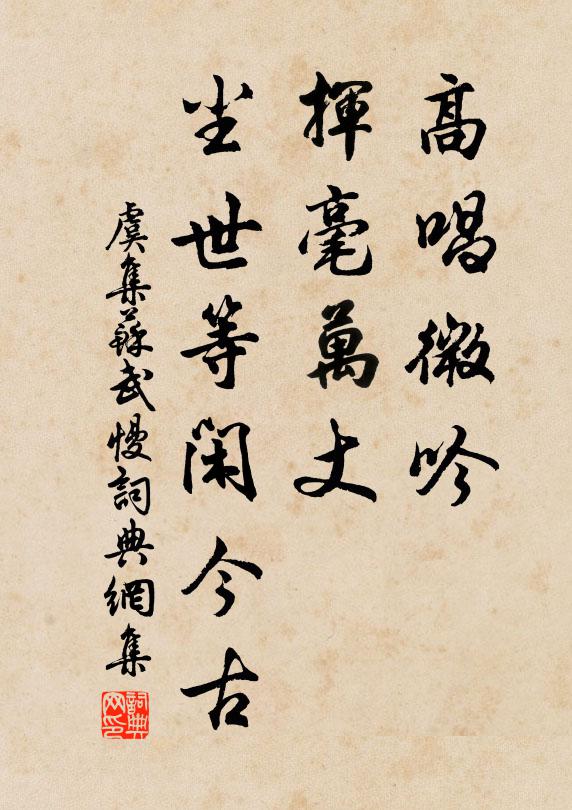 高唱微吟
揮毫萬丈
尘世等閑今古
虞集蘇武慢詞典網集
詞典网印